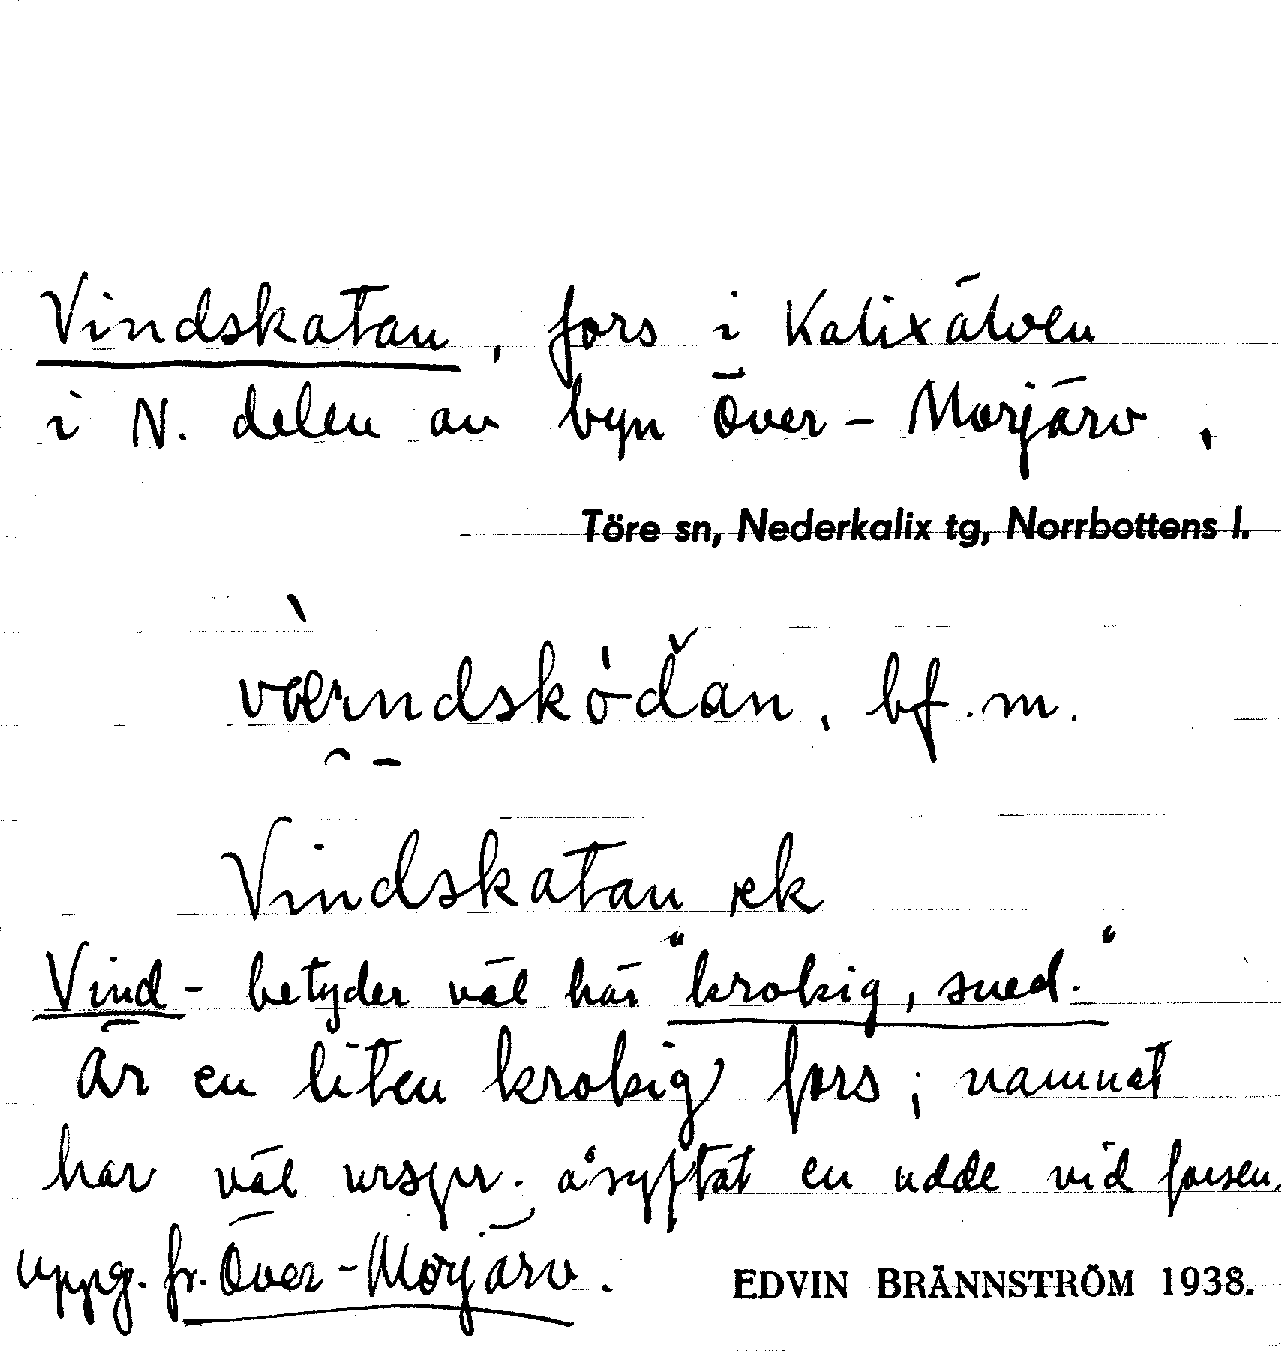 Vindskatan, fors i Kalixälven
i N. delen av byn Över-Morjärv,
Töre sn, Nederkalix tg, Norrbottens l.
bf. m.
Vindskatan ek
Vind- betyder väl här "krokig, sned."
Är en liten krokig fors; namnet
har väl urspr. åsyftat en udde vid forsen.
Uppg. fr. Över-Morjärv.
EDVIN BRÄNNSTRÖM 1938.